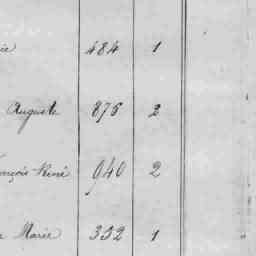 ie 484 1
Auguste 876 2
ançois René 940 2
e Marie 332 1